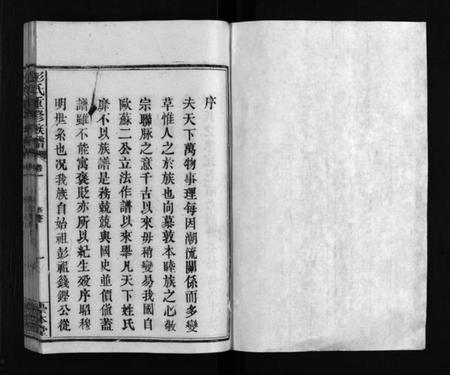 序
夫天下萬物事理每因潮流關係而多變
革惟人之於族也向慕敦本睦族之心敬
宗聯脉之意千古以來毋稍變易我國自
歐蘇二公立法作譜以來舉凡天下姓氏
靡不以族譜是務兢兢與國史並價值蓋
譜雖不能寓褒貶亦所以紀生歿序昭穆
明世系也况我族自始祖彭祖籛鏗公從
彭氏重修族譜